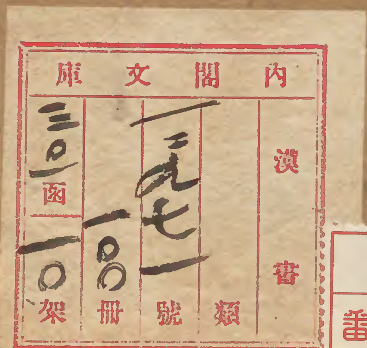 内閣文庫
漢書
類
一二九七一號
一〇〇冊
三〇一函
一〇架
番